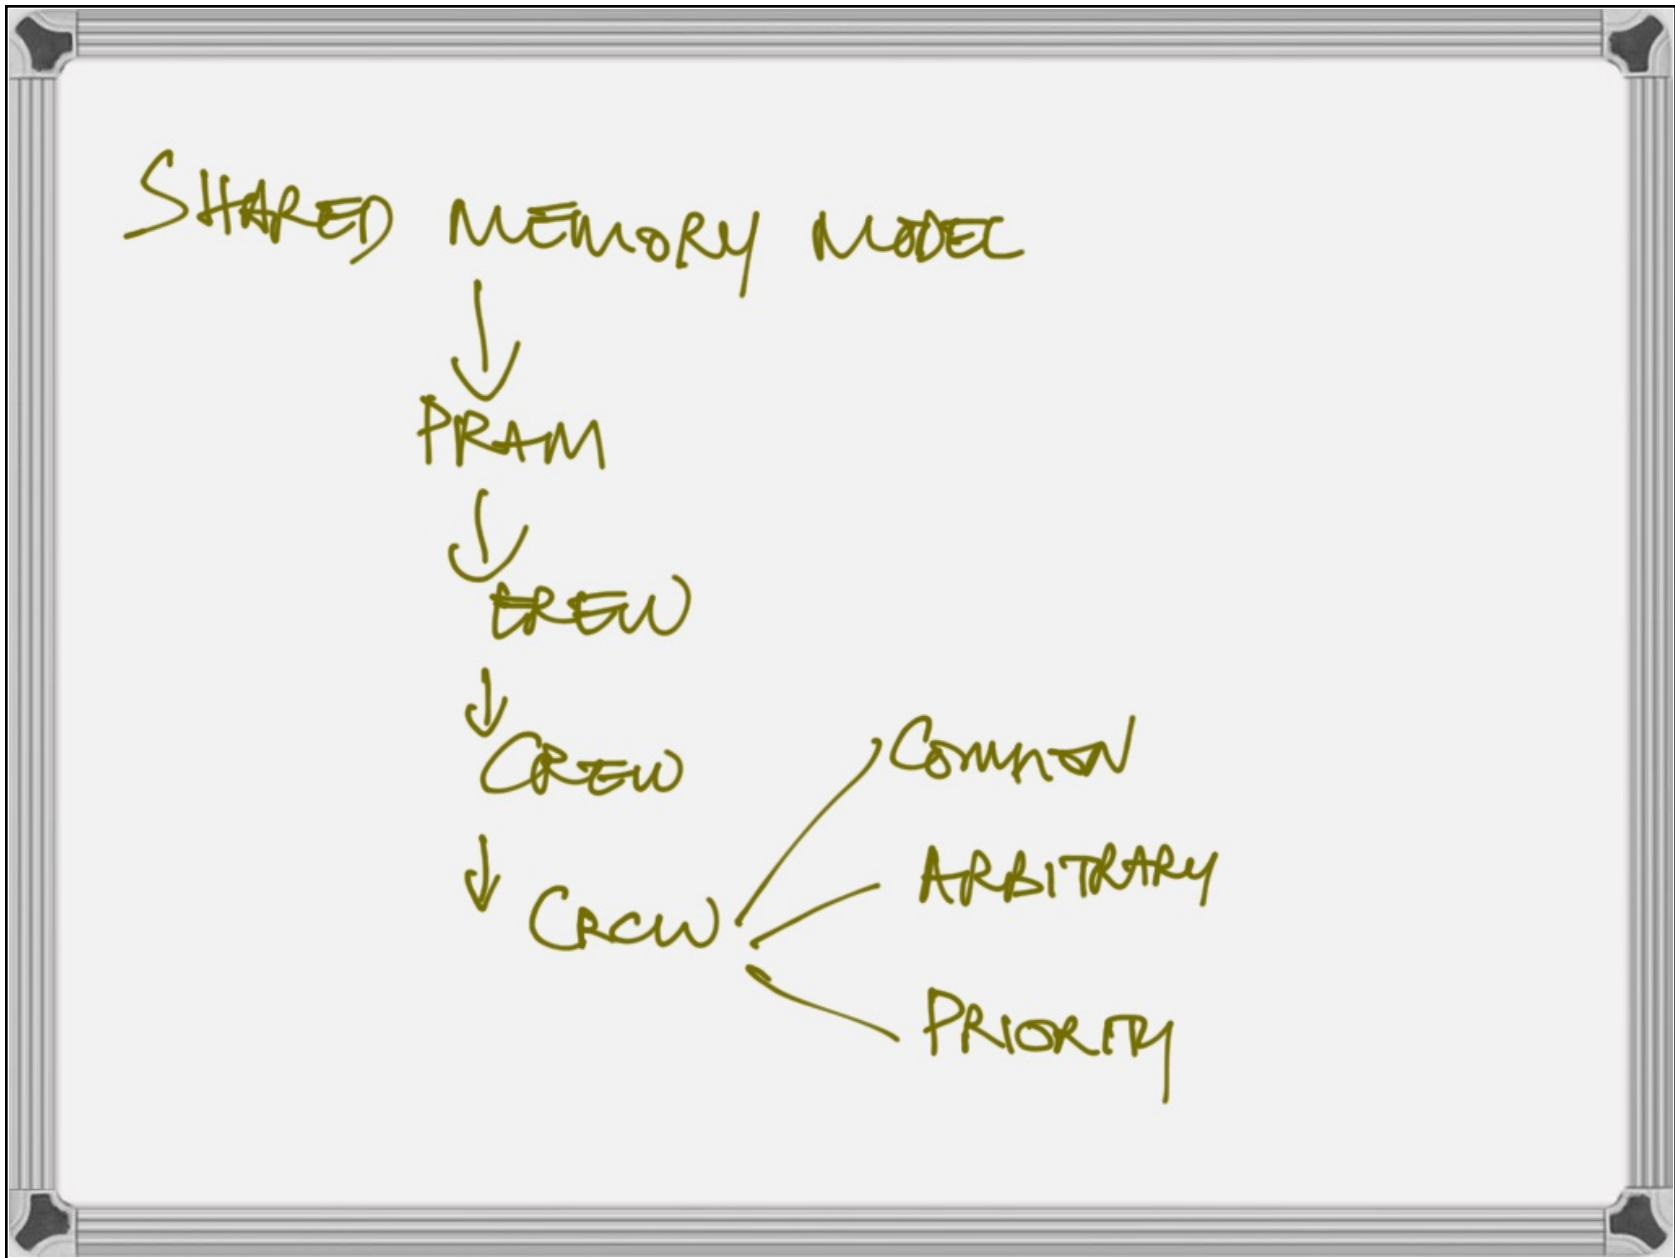 SHARED MEMORY MODEL
PRAM
EREW
CREW
CRCW
COMMON
ARBITRARY
PRIORITY